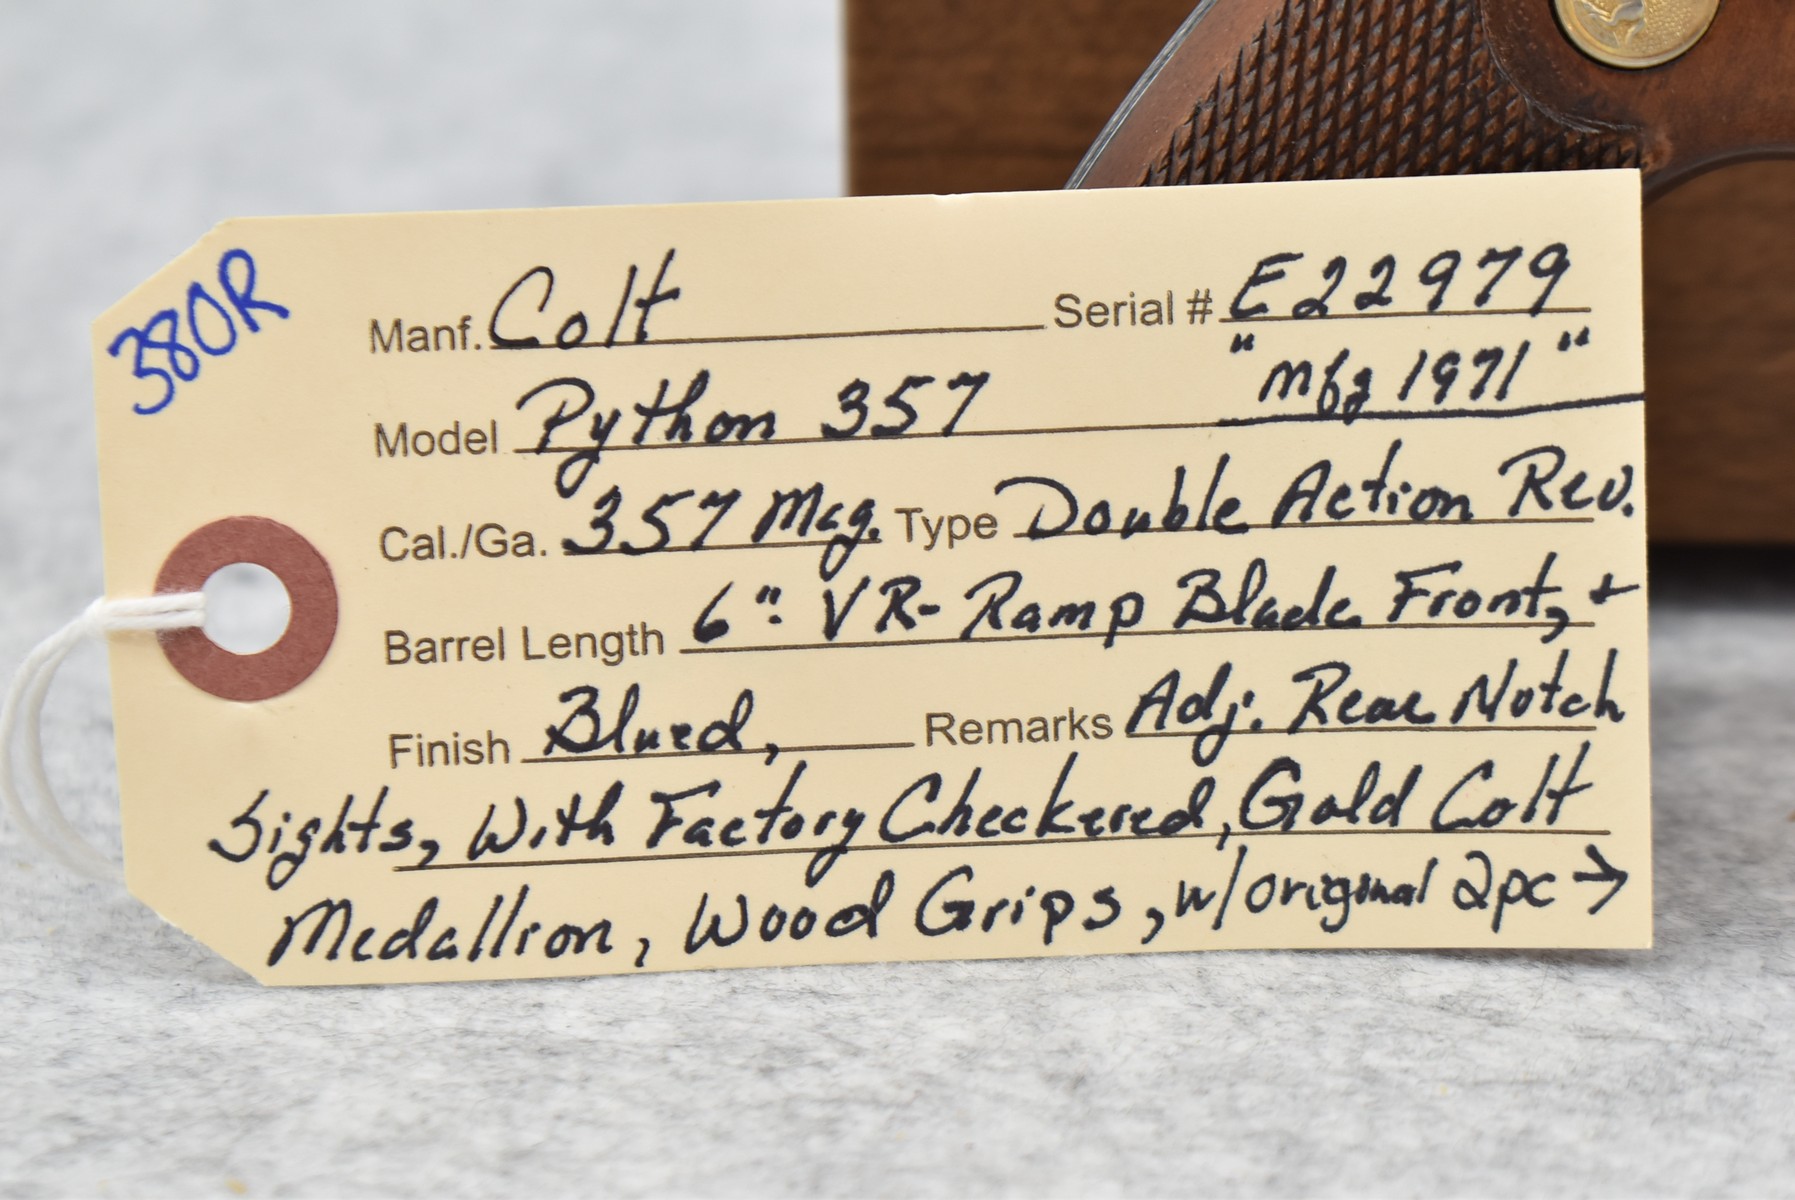 380R
Manf. Colt Serial # E22979
Model Python 357 "Mfg 1971"
Cal./Ga. 357 Mag. Type Double Action Rev.
Barrel Length 6": VR- Ramp Blade Front, +
Finish Blued, Remarks Adj. Rear Notch
Sights, With Factory Checkered, Gold Colt
Medallion, Wood Grips, w/original 2pc →